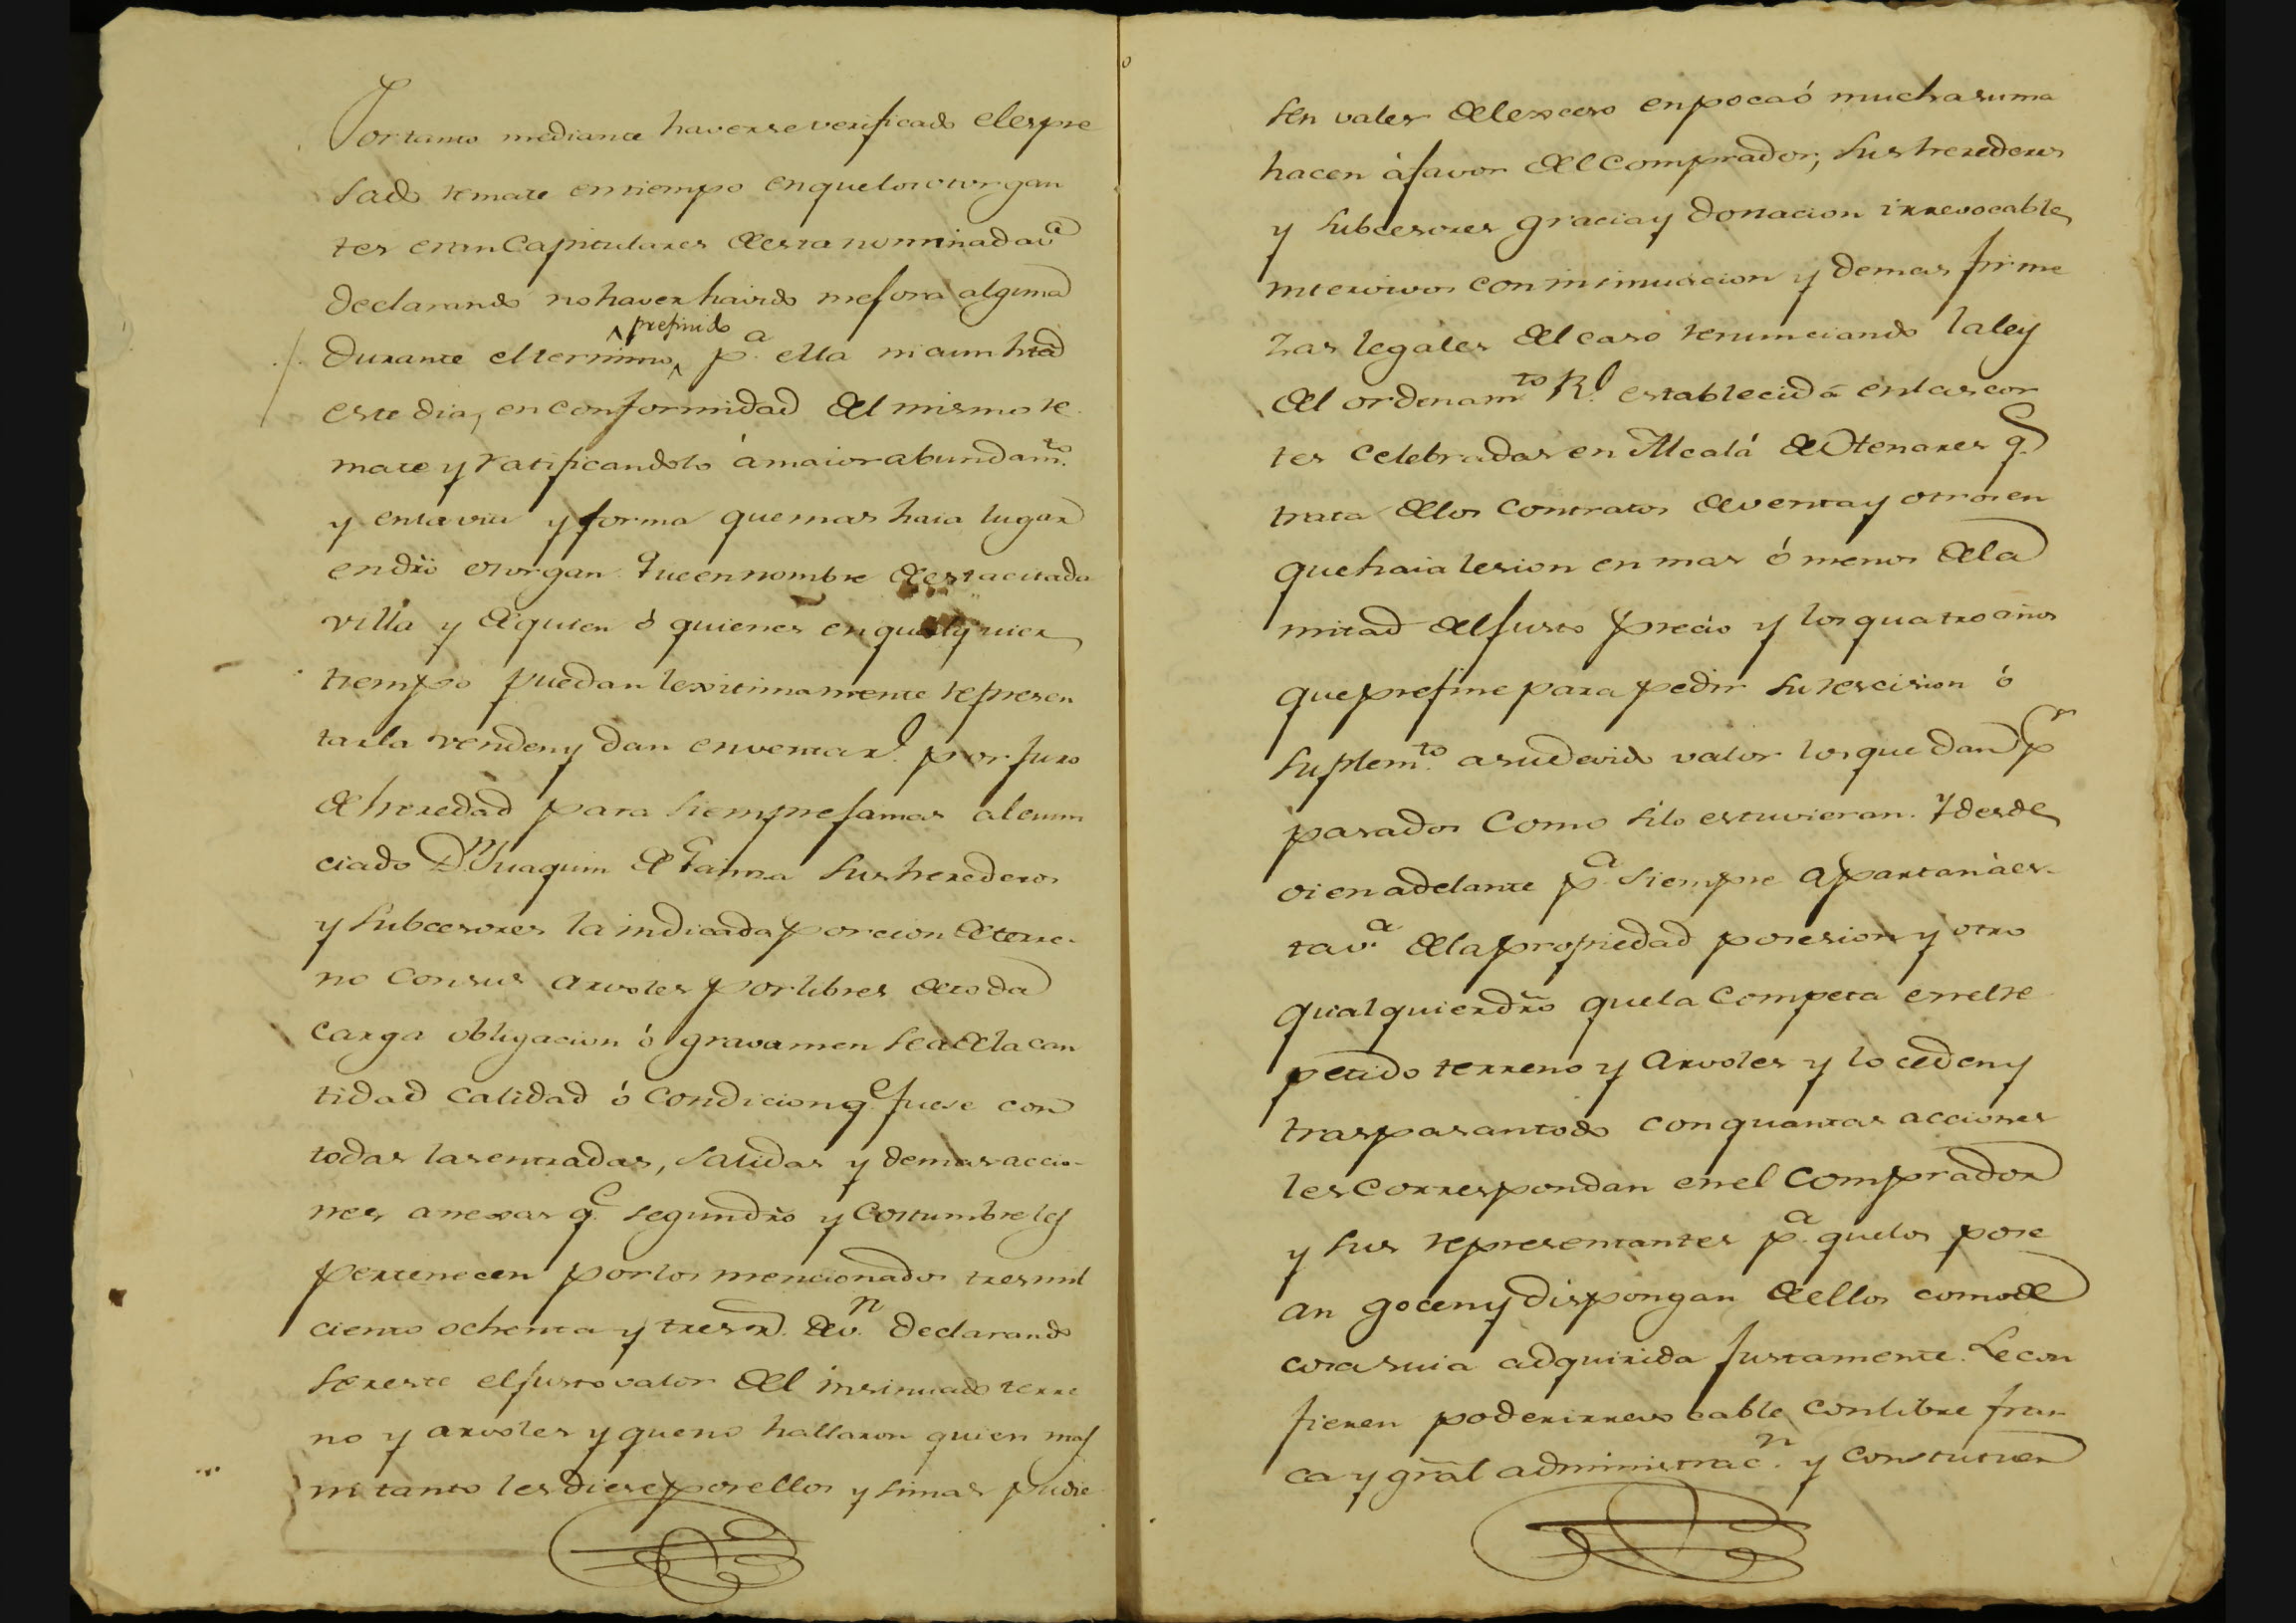 Portanto mediante haverse verificado el espre
sado remate en tiempo en que los otorgan
tes eran Capitulares de esta nominada v.ª
declarando no haver havido mejora alguna
durante el termino, prefinido p.ª ella ni aun hta
este dia, en conformidad del mismo re
mate y ratificandolo á maior abundam.to
y en la via y forma que mas haia lugar
en dro otorgan. Que en nombre de esta citada
villa y de quien ó quienes en qualquier
tiempo puedan lexitimamente represen
tarla venden y dan en venta R.l por juro
de heredad para siempre jamas al enun
ciado D.n Juaquin de Gaimza sus herederos
y subcesores la indicada porcion de terre-
no con sus arvoles por libres de toda
carga obligacion ó gravamen sea de la can
tidad calidad ó condicion q.e fuese con
todas las entradas, salidas y demas accio-
nes anexas q.e segun dro y costumbre les
pertenecen por los mencionados tres mil
ciento ochenta y tres r.s de v.n declarando
ser este el justo valor del insinuado terre
no y arvoles y que no hallaron quien mas
ni tanto les diese por ellos y si mas pudie
sen valer del exceso en poca ó mucha suma
hacen á favor del comprador, sus herederos
y subcesores gracia y donacion irrevocable
intervivos con insinuacion y demas firme
zas legales del caso renunciando la ley
del ordenam.to R.l establecida en las cor
tes celebradas en Alcalá de Henares q.e
trata de los contratos de venta y otros en
que haia lesion en mas ó menos de la
mitad del justo precio y los quatro años
que prefine para pedir su rescision ó
suplem.to a su devido valor los que dan p.r
pasados como si lo estuvieran. Y desde
oi en adelante p.ª siempre apartan á es-
ta v.ª de la propiedad posesion y otro
qualquier dro que la competa en el re
petido terreno y arvoles y lo ceden y
traspasan todo con quantas acciones
les correspondan en el comprador
y sus representantes p.ª que los pose
an gocen y dispongan de ellos como de
cosa suia adquirida justamente. Le con
fieren poder irrevocable con libre fran
ca y gral administrac.n y constituien